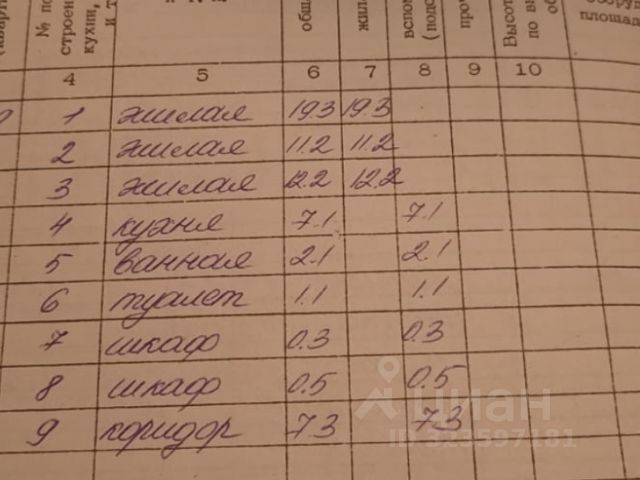 № по
строен
кухни,
и т
общ
жила
вспом
(подс
проч
Высот
по вн
об
площад
4 5 6 7 8 9 10
1 жилая 19.3 19.3
2 жилая 11.2 11.2
3 жилая 12.2 12.2
4 кухня 7.1 7.1
5 ванная 2.1 2.1
6 туалет 1.1 1.1
7 шкаф 0.3 0.3
8 шкаф 0.5 0.5
9 коридор 7.3 7.3
циан
ID 323597181